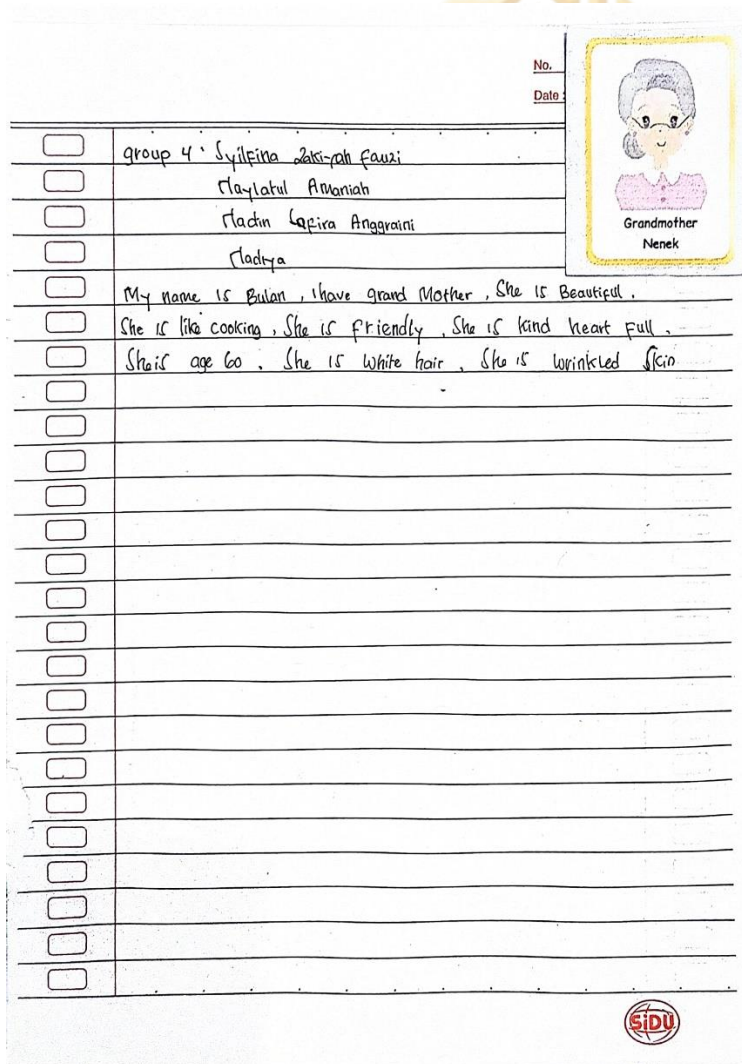 No.
Date :
Grandmother
Nenek
group 4 : Syilfina Zakiyah Fauzi
Naylatul Amaniah
Nadin Safira Anggraini
Nadiya
My name is Bulan , I have grand Mother , She is Beautiful .
She is like cooking , She is friendly , She is kind heart full .
She is age 60 . She is white hair , She is wrinkled skin
SiDU